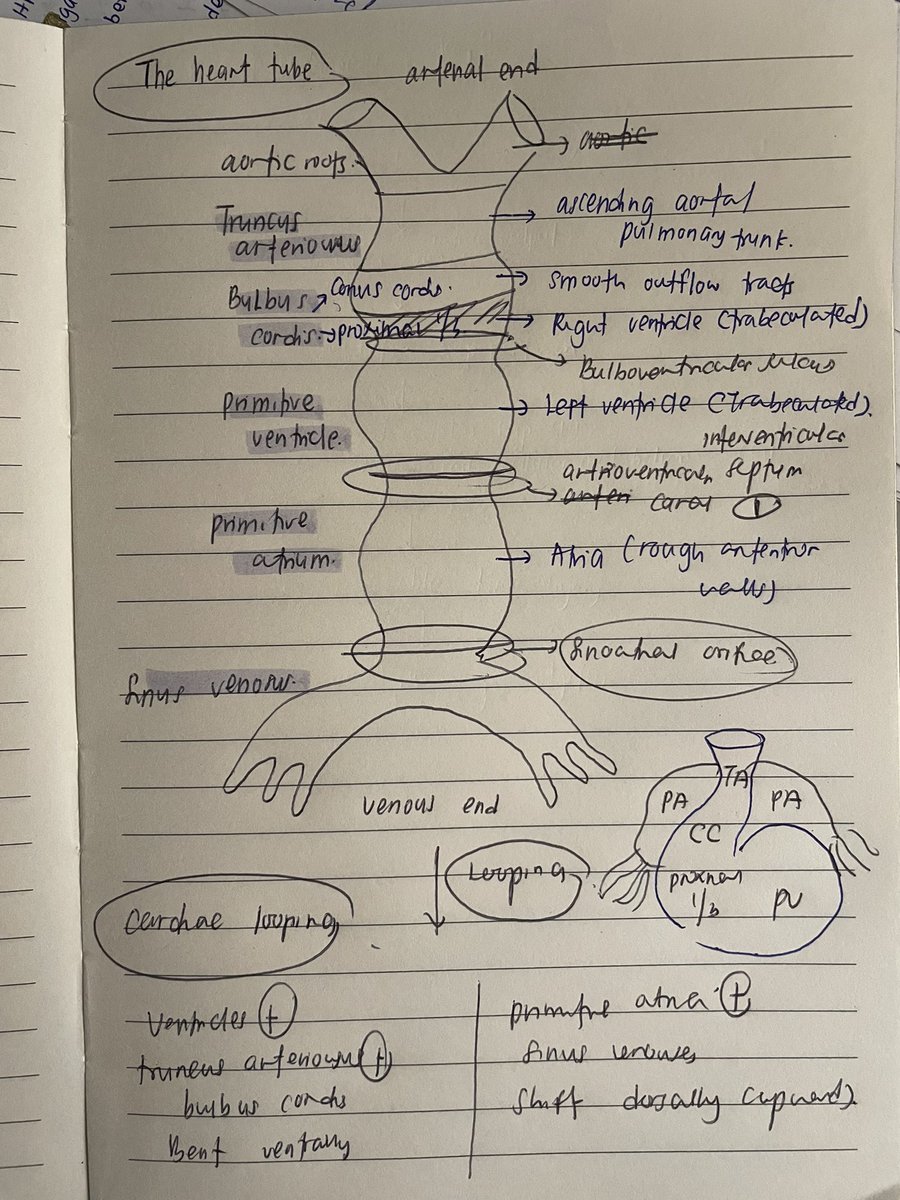 The heart tube
arterial end
aortic
aortic roots.
Truncus
arteriosus
ascending aorta/
pulmonary trunk.
Conus cordis.
smooth outflow tracts
Bulbus
cordis. proximal 1/3
Right ventricle (trabeculated)
Bulboventricular sulcus
primitive
ventricle.
Left ventricle (Trabeculated).
interventricular
septum
atrioventricular
canal 1
primitive
atrium.
Atria (rough anterior
walls)
sinoatrial orifice
sinus venosus.
venous end
TA
PA
PA
CC
proximal
1/3
PV
Looping
Cardiac looping
Ventricles +
truncus arteriosus +
bulbus cordis
Bent ventrally
primitive atria +
sinus venosus
Shift dorsally (upward).